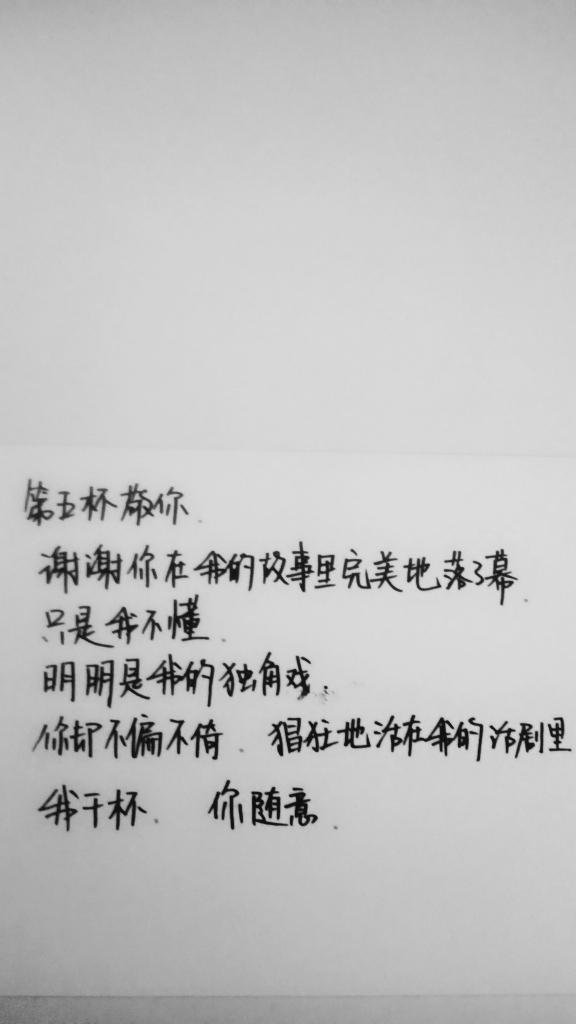 第五杯敬你.
谢谢你在我的故事里完美地落了幕.
只是我不懂.
明明是我的独角戏.
你却不偏不倚. 猖狂地活在我的话剧里
我干杯. 你随意.